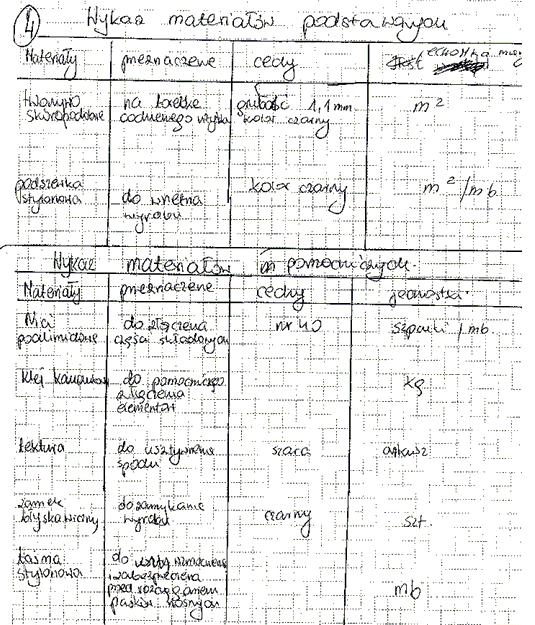 4 Wykaz materiałów podstawowych
Materiały przeznaczenie cechy jednostka
tworzywo na torebkę grubość 1,1 mm m²
skóropodobne codziennego użytku kolor czarny
podszewka kolor czarny m²/mb
stylonowa do wnętrza
wyrobu
Wykaz materiałów pomocniczych
Materiały przeznaczenie cechy jednostka
Nici do złączenia nr 40 szpulki / mb.
poliamidowe części składowych
klej kauczukowy do pomocniczego kg
złączenia
elementów
tektura do usztywnienia szara arkusz
spodu
zamek do zamykania czarny szt
błyskawiczny wyrobu
taśma do wzmocnienia
stylonowa i zabezpieczenia mb
przed rozciąganiem
pasków nośnych